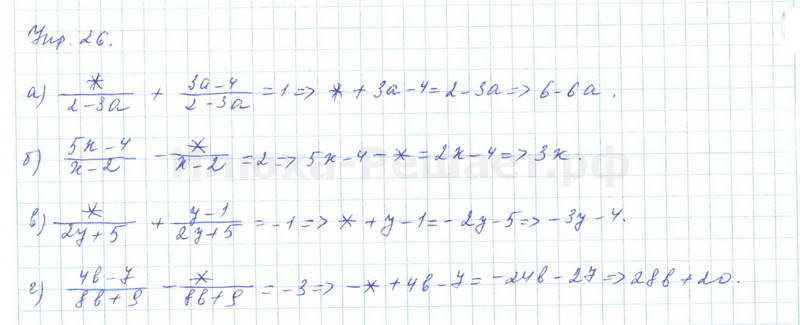 Упр. 26.
а) */(2-3a) + (3a-4)/(2-3a) = 1 => * + 3a - 4 = 2 - 3a => 6 - 6a.
б) (5x-4)/(x-2) - */(x-2) = 2 => 5x - 4 - * = 2x - 4 => 3x.
в) */(2y+5) + (y-1)/(2y+5) = -1 => * + y - 1 = -2y - 5 => -3y - 4.
г) (4b-7)/(8b+9) - */(8b+9) = -3 => -* + 4b - 7 = -24b - 27 => 28b + 20.